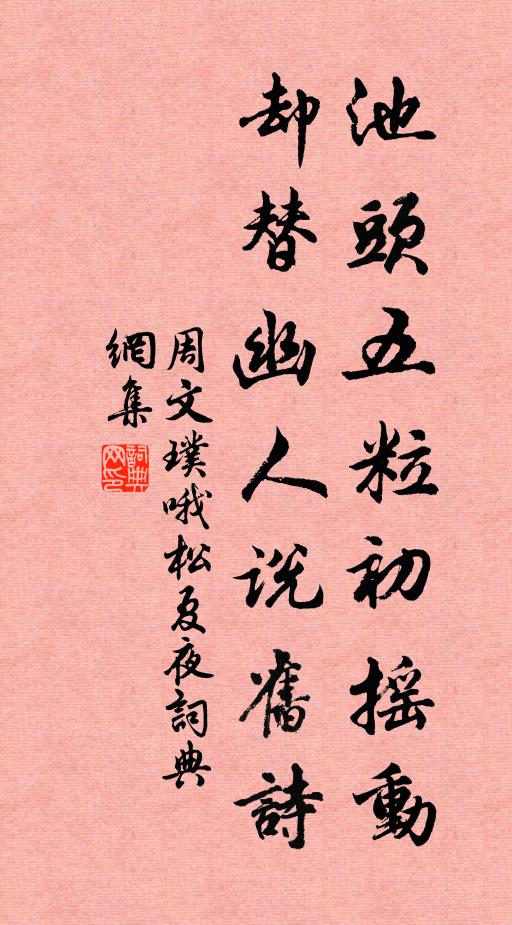 池頭五粒初摇動
却替幽人说舊詩
周文璞哦松夏夜詞典
網集
詞典
网印